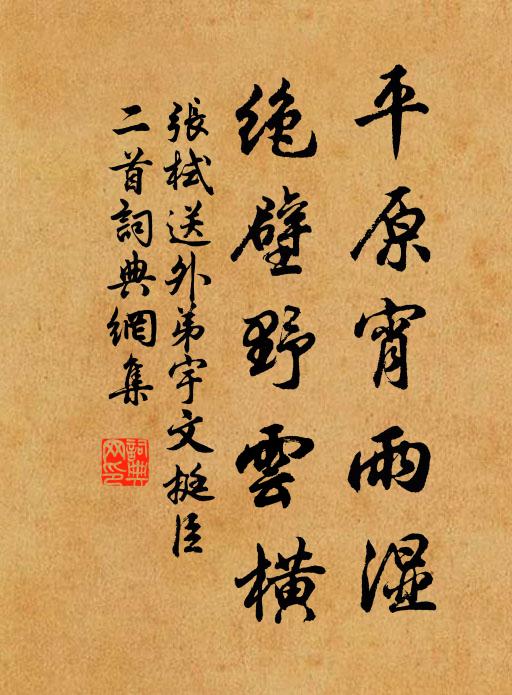 平原宵雨湿
绝壁野雲横
張栻送外弟宇文挺臣
二首詞典網集
詞典
网印